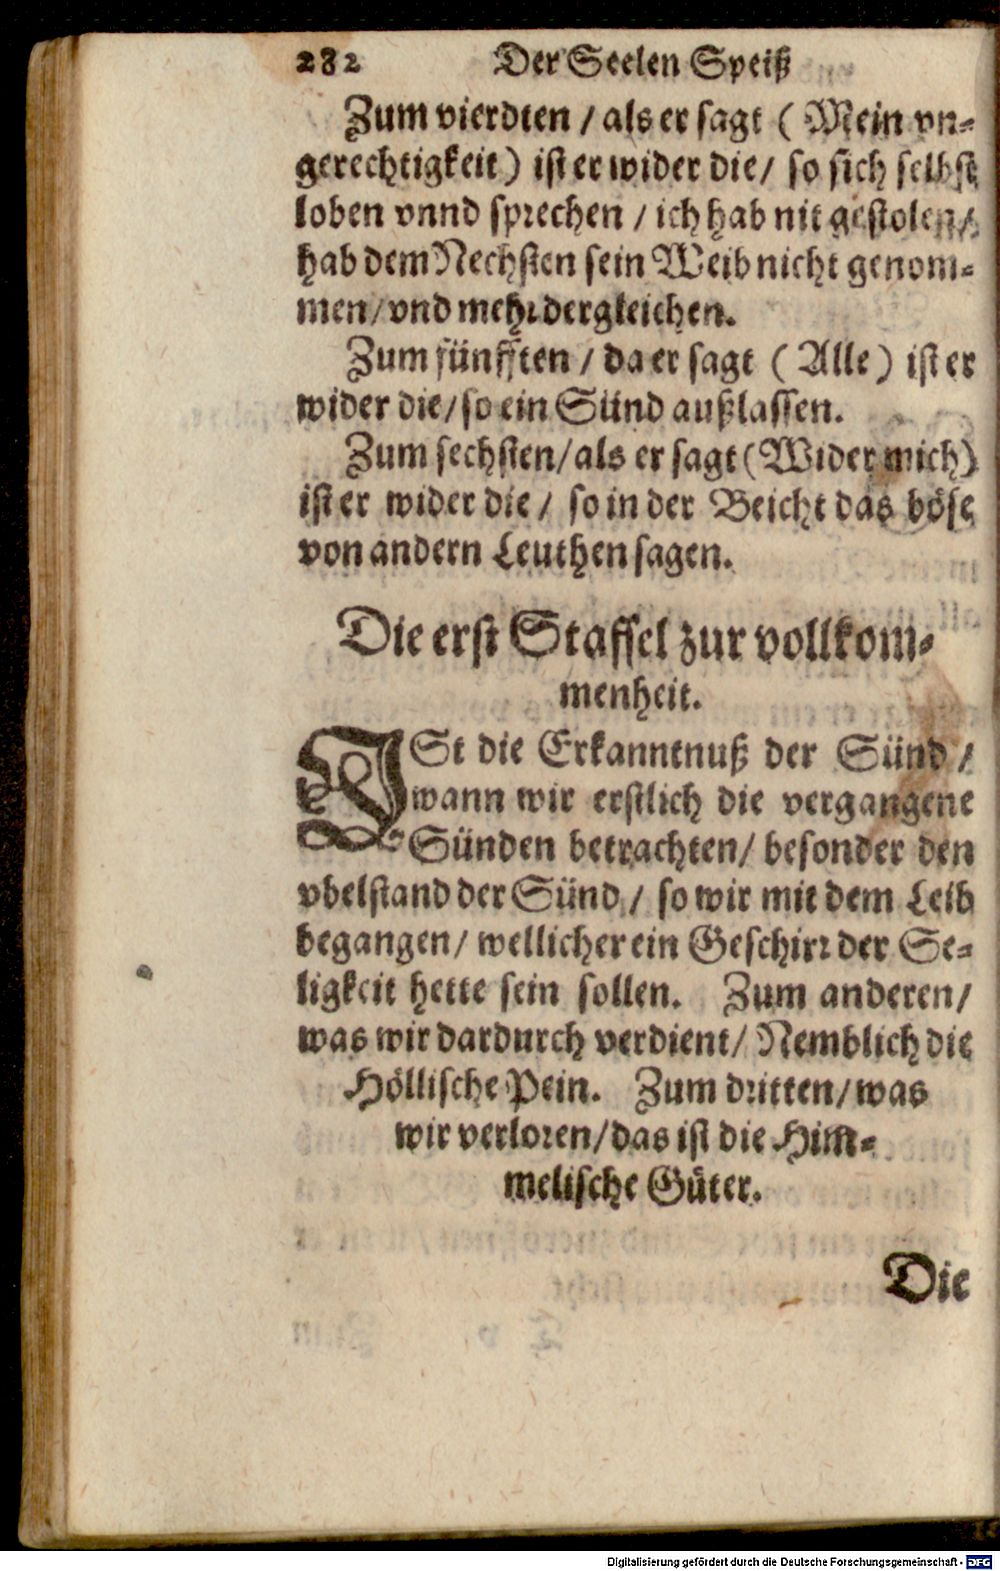 282 Der Seelen Speiß
Zum vierdten / als er sagt ( Mein vn-
gerechtigkeit) ist er wider die / so sich selbst
loben vnnd sprechen / ich hab nit gestolen /
hab dem Nechsten sein Weib nicht genom-
men / vnd mehr dergleichen.
Zum fünfften / da er sagt ( Alle ) ist er
wider die / so ein Sünd außlassen.
Zum sechsten / als er sagt (Wider mich)
ist er wider die / so in der Beicht das böse
von andern Leuthen sagen.
Die erst Staffel zur vollkom-
menheit.
ISt die Erkanntnuß der Sünd /
wann wir erstlich die vergangene
Sünden betrachten / besonder den
vbelstand der Sünd / so wir mit dem Leib
begangen / wellicher ein Geschirr der Se-
ligkeit hette sein sollen. Zum anderen /
was wir dardurch verdient / Nemblich die
Höllische Pein. Zum dritten / was
wir verloren / das ist die Him-
melische Güter.
Die
Digitalisierung gefördert durch die Deutsche Forschungsgemeinschaft - DFG